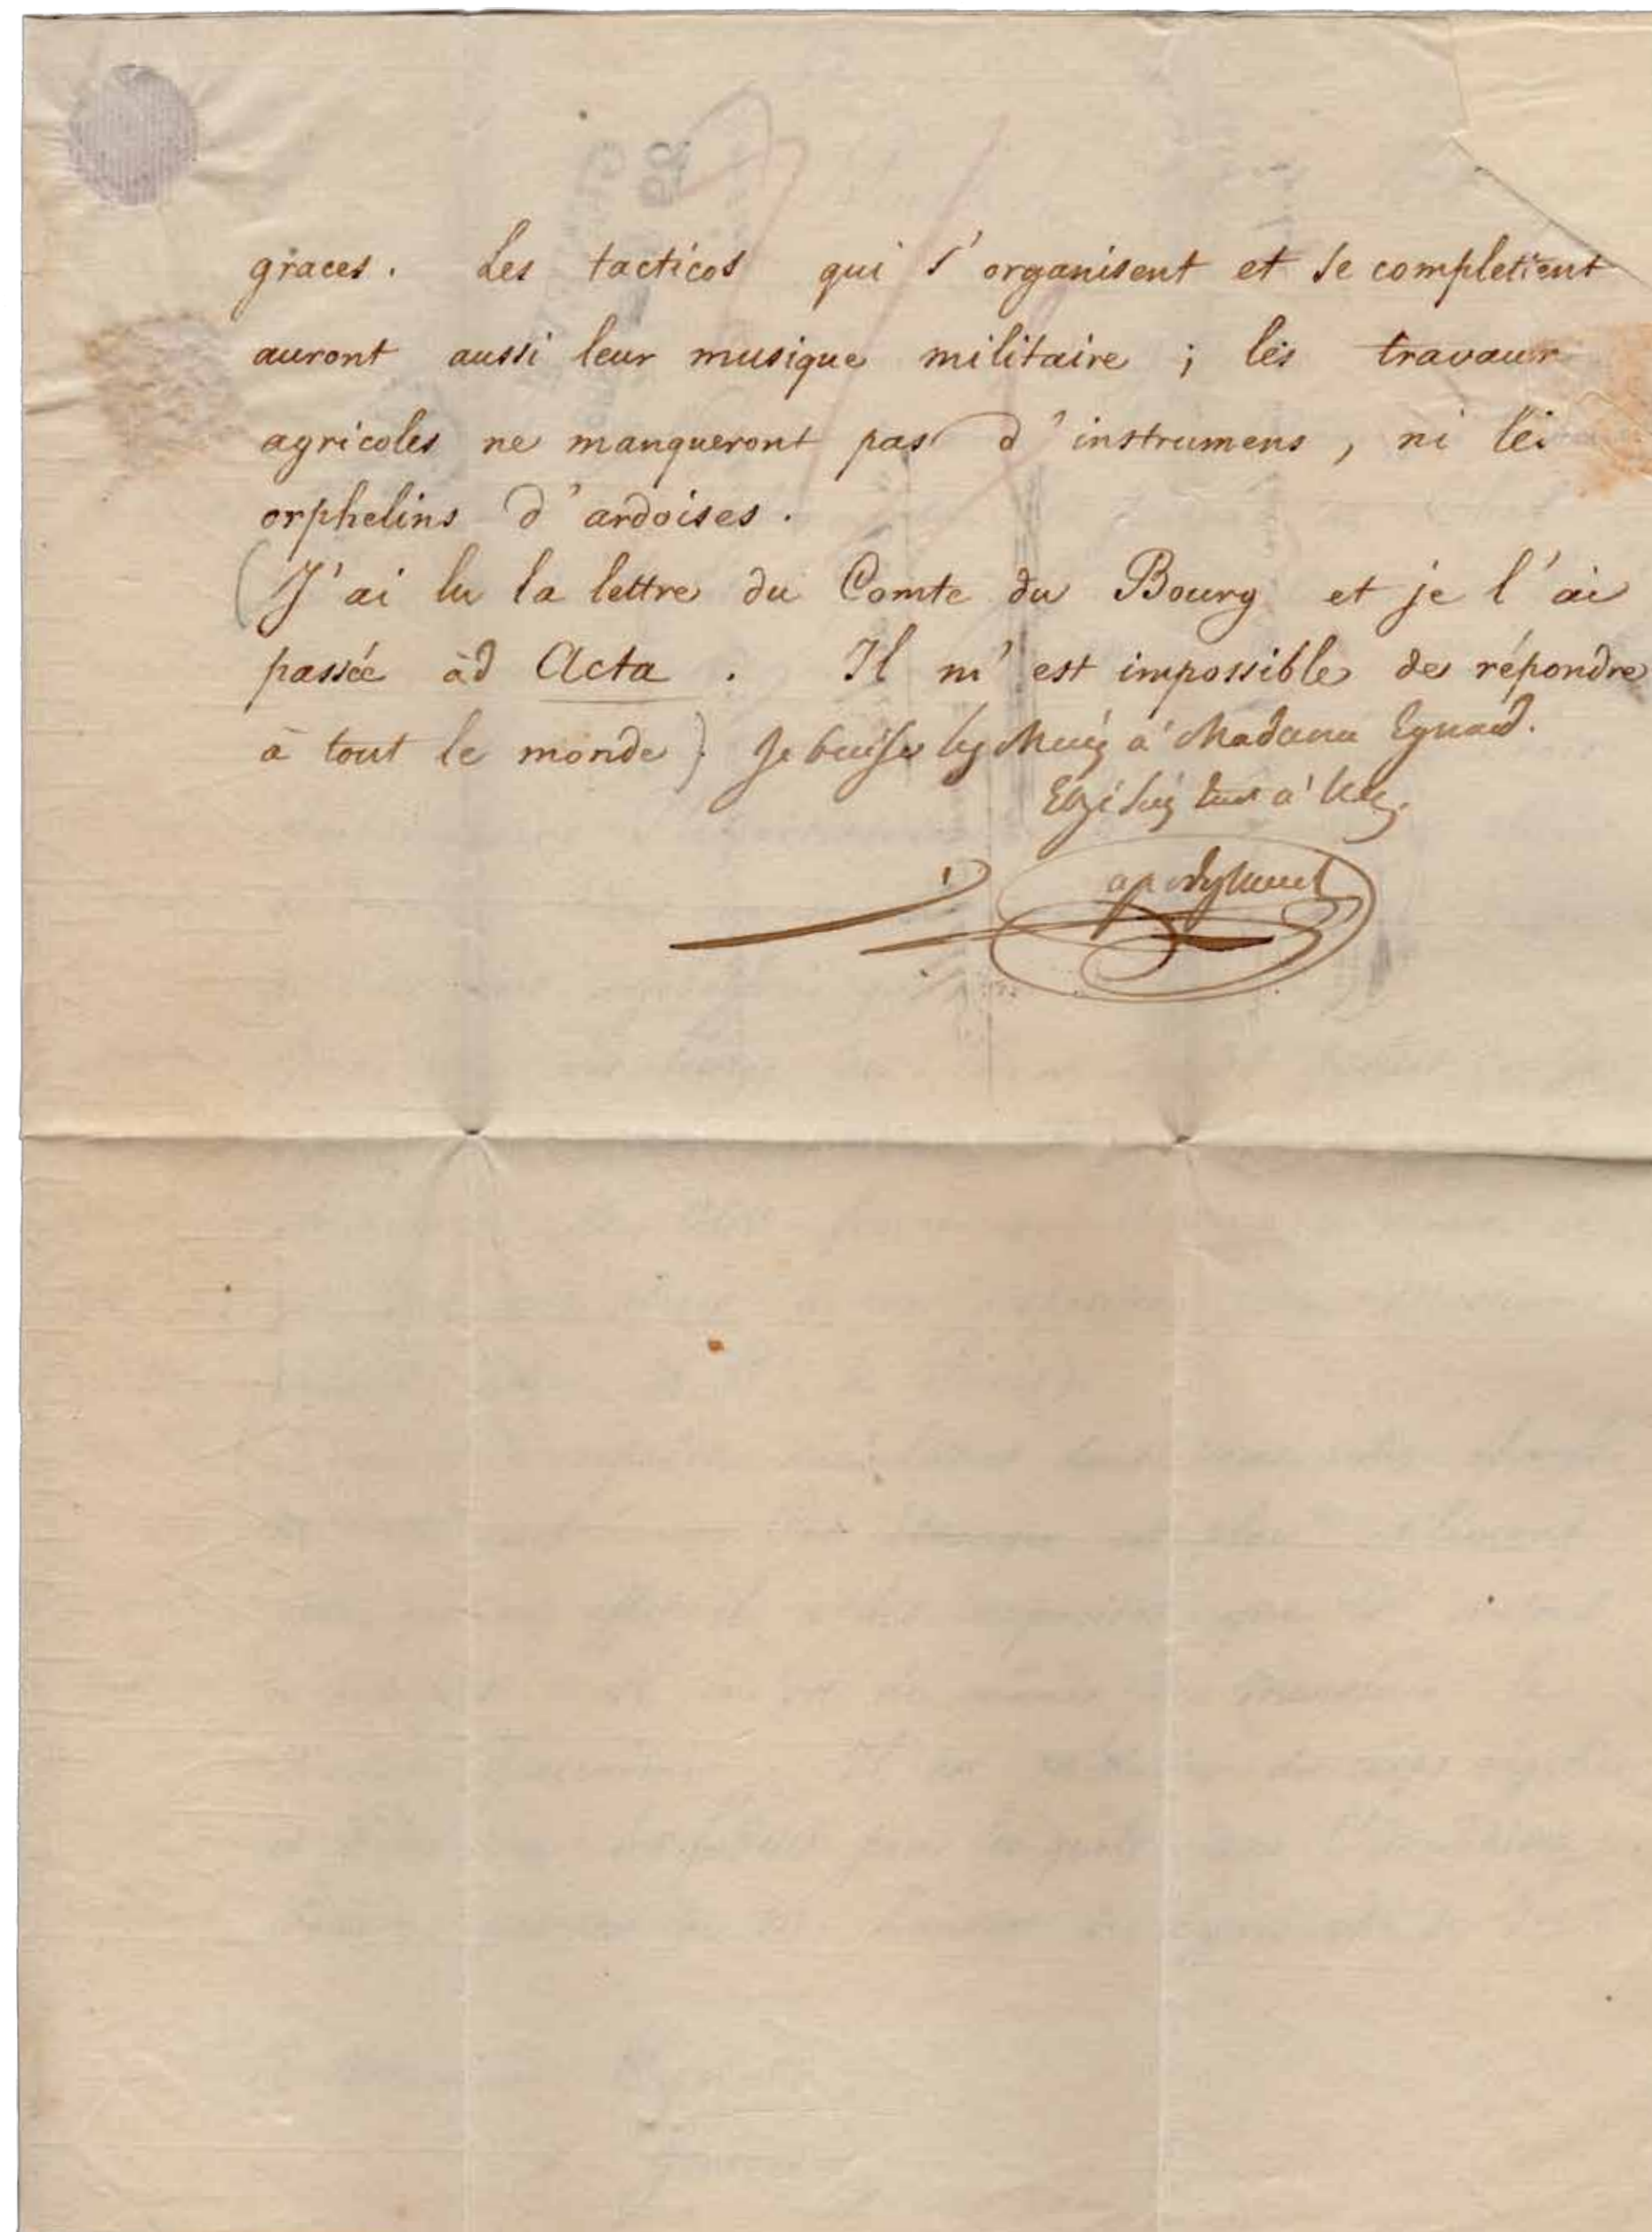 graces. Les tacticos qui s'organisent et se completient
auront aussi leur musique militaire ; les travaux
agricoles ne manqueront pas d'instrumens, ni les
orphelins d'ardoises.
(J'ai lu la lettre du Comte du Bourg et je l'ai
passée ad Acta. Il m'est impossible de répondre
à tout le monde). Je baise les mains à Madame Eynard.
tout à